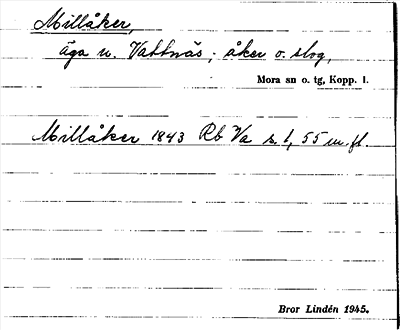 Millåker,
äga n. Vattnäs; åker o. slog,
Mora sn o. tg, Kopp. l.
Millåker 1843 Rb Va s. 1, 55 m. fl.
Bror Lindén 1945.